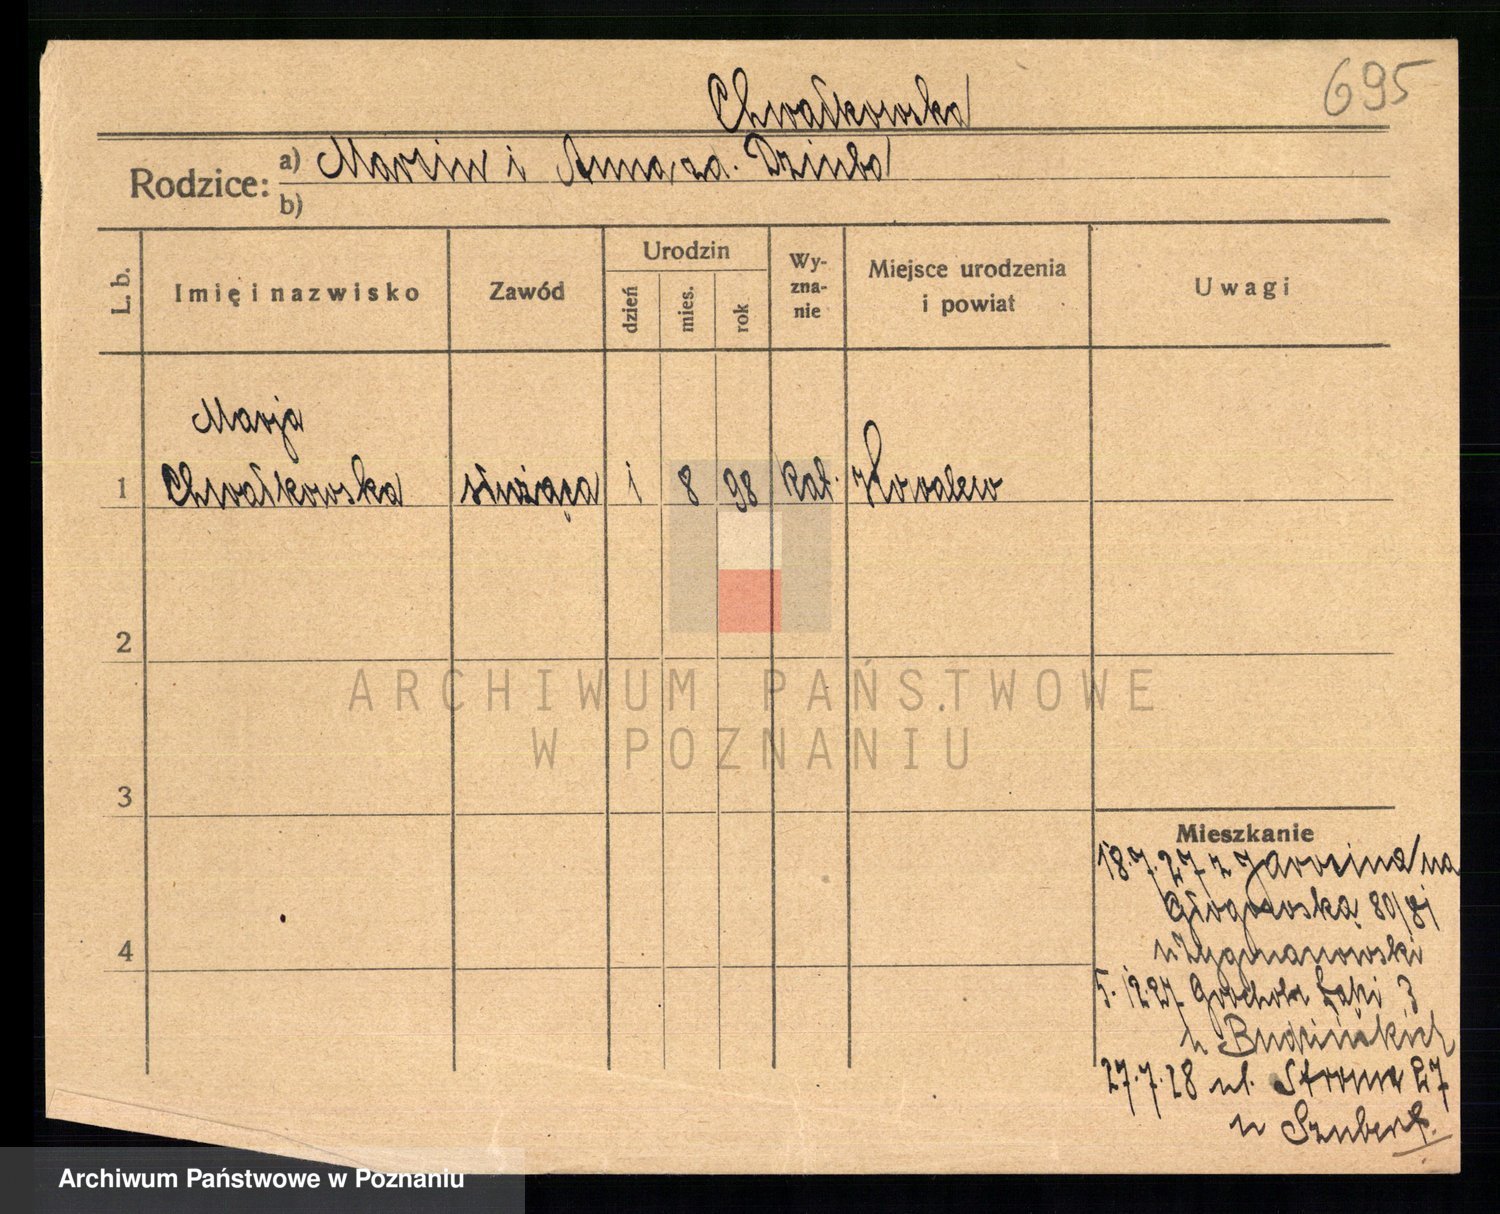 695
Chwałkowska
Rodzice:
a) Marcin i Anna za. Dziuba
b)
L. b.
Imię i nazwisko
Zawód
Urodzin
dzień
mies.
rok
Wy-
zna-
nie
Miejsce urodzenia
i powiat
Uwagi
Marja
1 Chwałkowska służąca 1 8 98 kat. Kowalew
2
3
4
Mieszkanie
18.7.27 z Jarocina na
Głogowską 80/81
u Zygmanowski
5.12.27 Grochowe Łąki 3
u Budzińskich
27.7.28 ul. Stroma 27
u Szubert.
ARCHIWUM PAŃSTWOWE
W POZNANIU
Archiwum Państwowe w Poznaniu